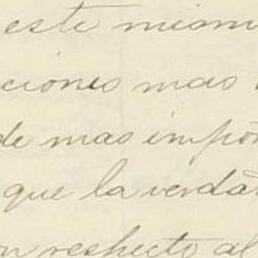 este mism
ciones mas
de mas impor
que la verda
on respecto al